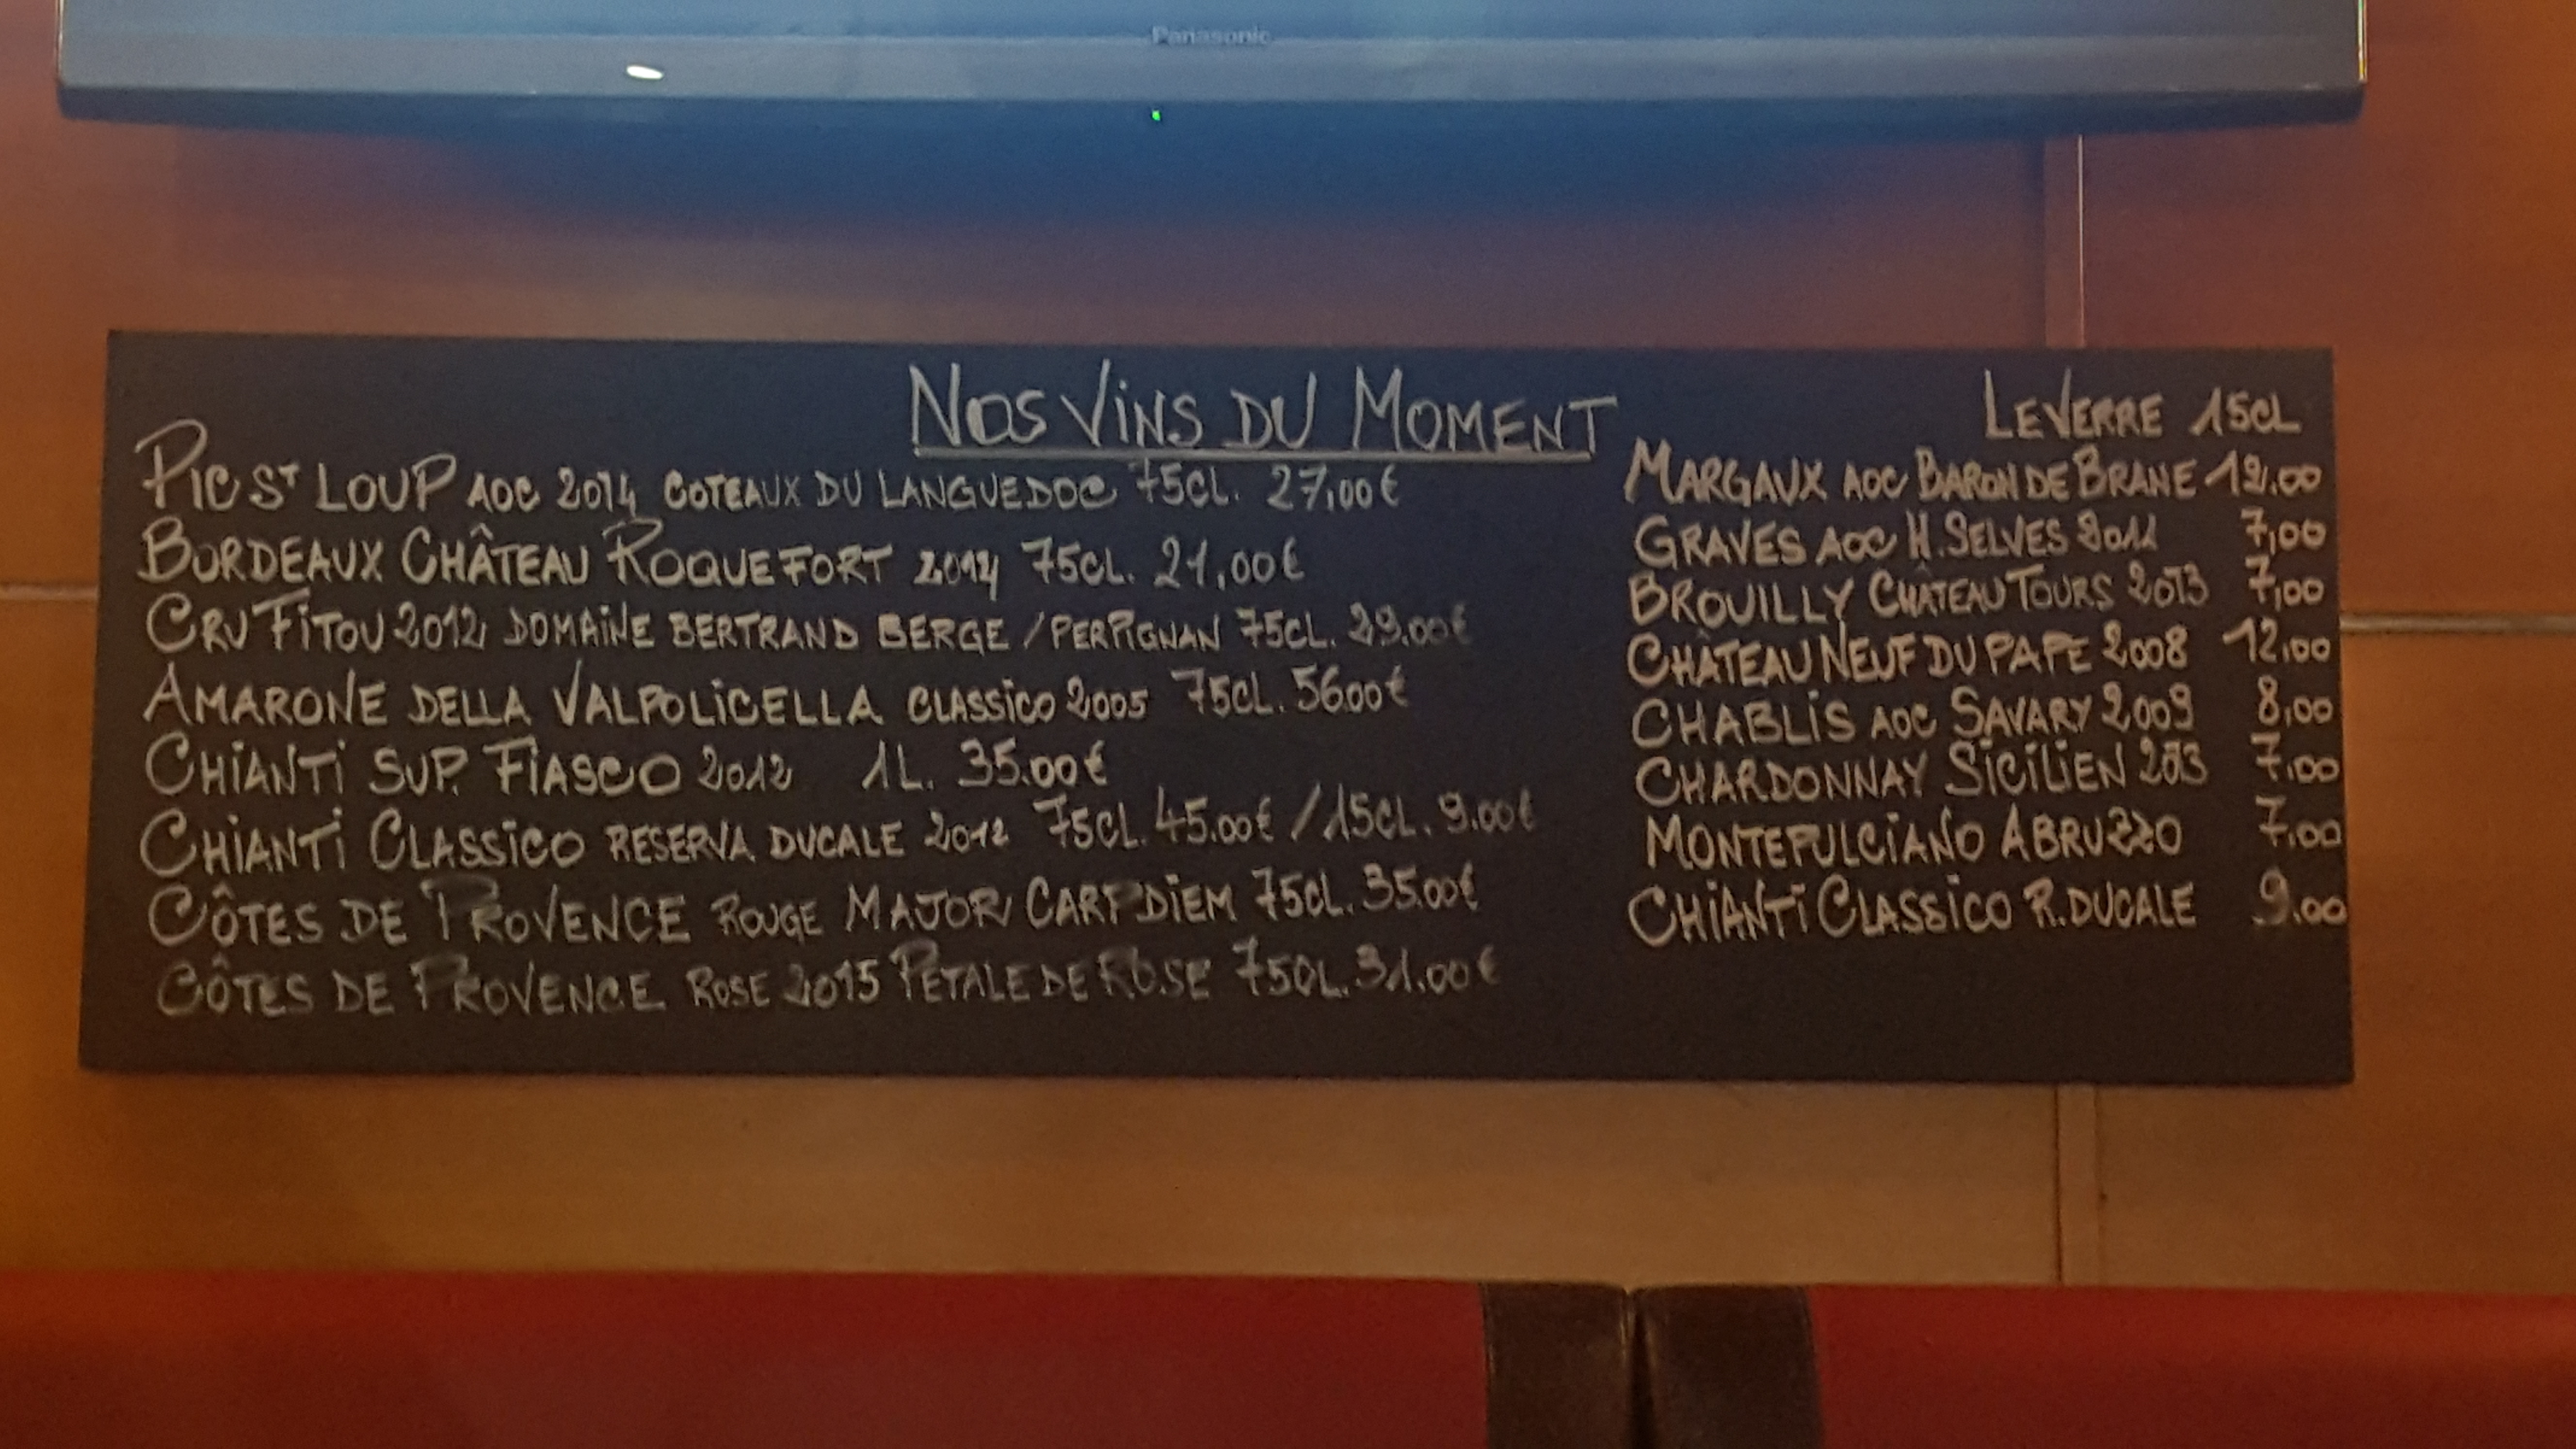 Panasonic
NOS VINS DU MOMENT
PIC ST LOUP AOC 2014 COTEAUX DU LANGUEDOC 75CL. 27,00€
BORDEAUX CHÂTEAU ROQUEFORT 2014 75CL. 21,00€
CRU FITOU 2012 DOMAINE BERTRAND BERGE / PERPIGNAN 75CL. 29.00€
AMARONE DELLA VALPOLICELLA CLASSICO 2005 75CL. 56.00€
CHIANTI SUP. FIASCO 2012 1L. 35.00€
CHIANTI CLASSICO RESERVA DUCALE 2012 75CL. 45.00€ / 15CL. 9.00€
CÔTES DE PROVENCE ROUGE MAJOR/ CARP DIEM 75CL. 35.00€
CÔTES DE PROVENCE ROSE 2015 PETALE DE ROSE 75CL. 31.00€
LE VERRE 15CL
MARGAUX AOC BARON DE BRANE 12.00
GRAVES AOC H. SELVES 2011 7,00
BROUILLY CHÂTEAU TOURS 2013 7,00
CHÂTEAU NEUF DU PAPE 2008 12,00
CHABLIS AOC SAVARY 2009 8,00
CHARDONNAY SICILIEN 2013 7.00
MONTEPULCIANO ABRUZZO 7.00
CHIANTI CLASSICO R. DUCALE 9.00